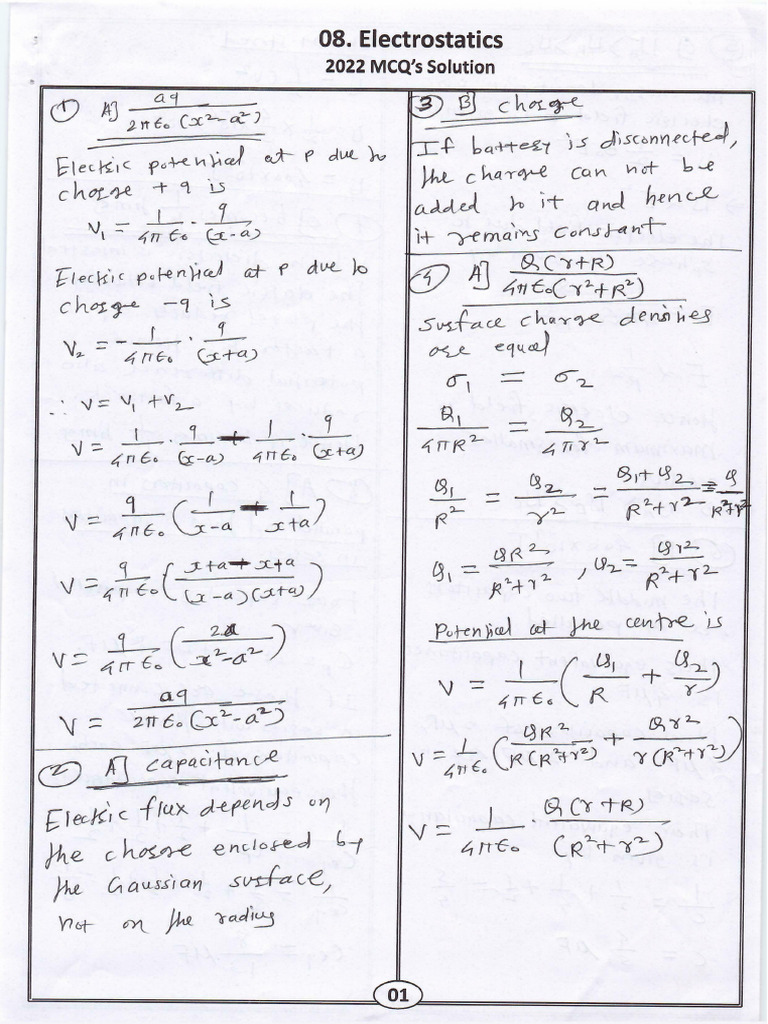 08. Electrostatics
2022 MCQ's Solution
① A] aq / 2πε₀(x²-a²)
Electric potential at p due to
charge +q is
V₁ = 1/4πε₀ · q/(x-a)
Electric potential at p due to
charge -q is
V₂ = - 1/4πε₀ · q/(x+a)
∴ V = V₁ + V₂
V = 1/4πε₀ · q/(x-a) - 1/4πε₀ · q/(x+a)
V = q/4πε₀ (1/x-a - 1/x+a)
V = q/4πε₀ (x+a - x+a / (x-a)(x+a))
V = q/4πε₀ (2a / x²-a²)
V = aq / 2πε₀(x²-a²)
② A] capacitance
Electric flux depends on
the charge enclosed by
the Gaussian surface,
not on the radius
③ B] charge
If battery is disconnected,
the charge can not be
added to it and hence
it remains constant
④ A] Q(r+R) / 4πε₀(r²+R²)
Surface charge densities
are equal
σ₁ = σ₂
Q₁/4πR² = Q₂/4πr²
Q₁/R² = Q₂/r² = Q₁+Q₂/R²+r² = Q/R²+r²
Q₁ = QR²/R²+r² , Q₂ = Qr²/R²+r²
Potential at the centre is
V = 1/4πε₀ (Q₁/R + Q₂/r)
V = 1/4πε₀ (QR²/R(R²+r²) + Qr²/r(R²+r²))
V = 1/4πε₀ Q(r+R)/(R²+r²)
01